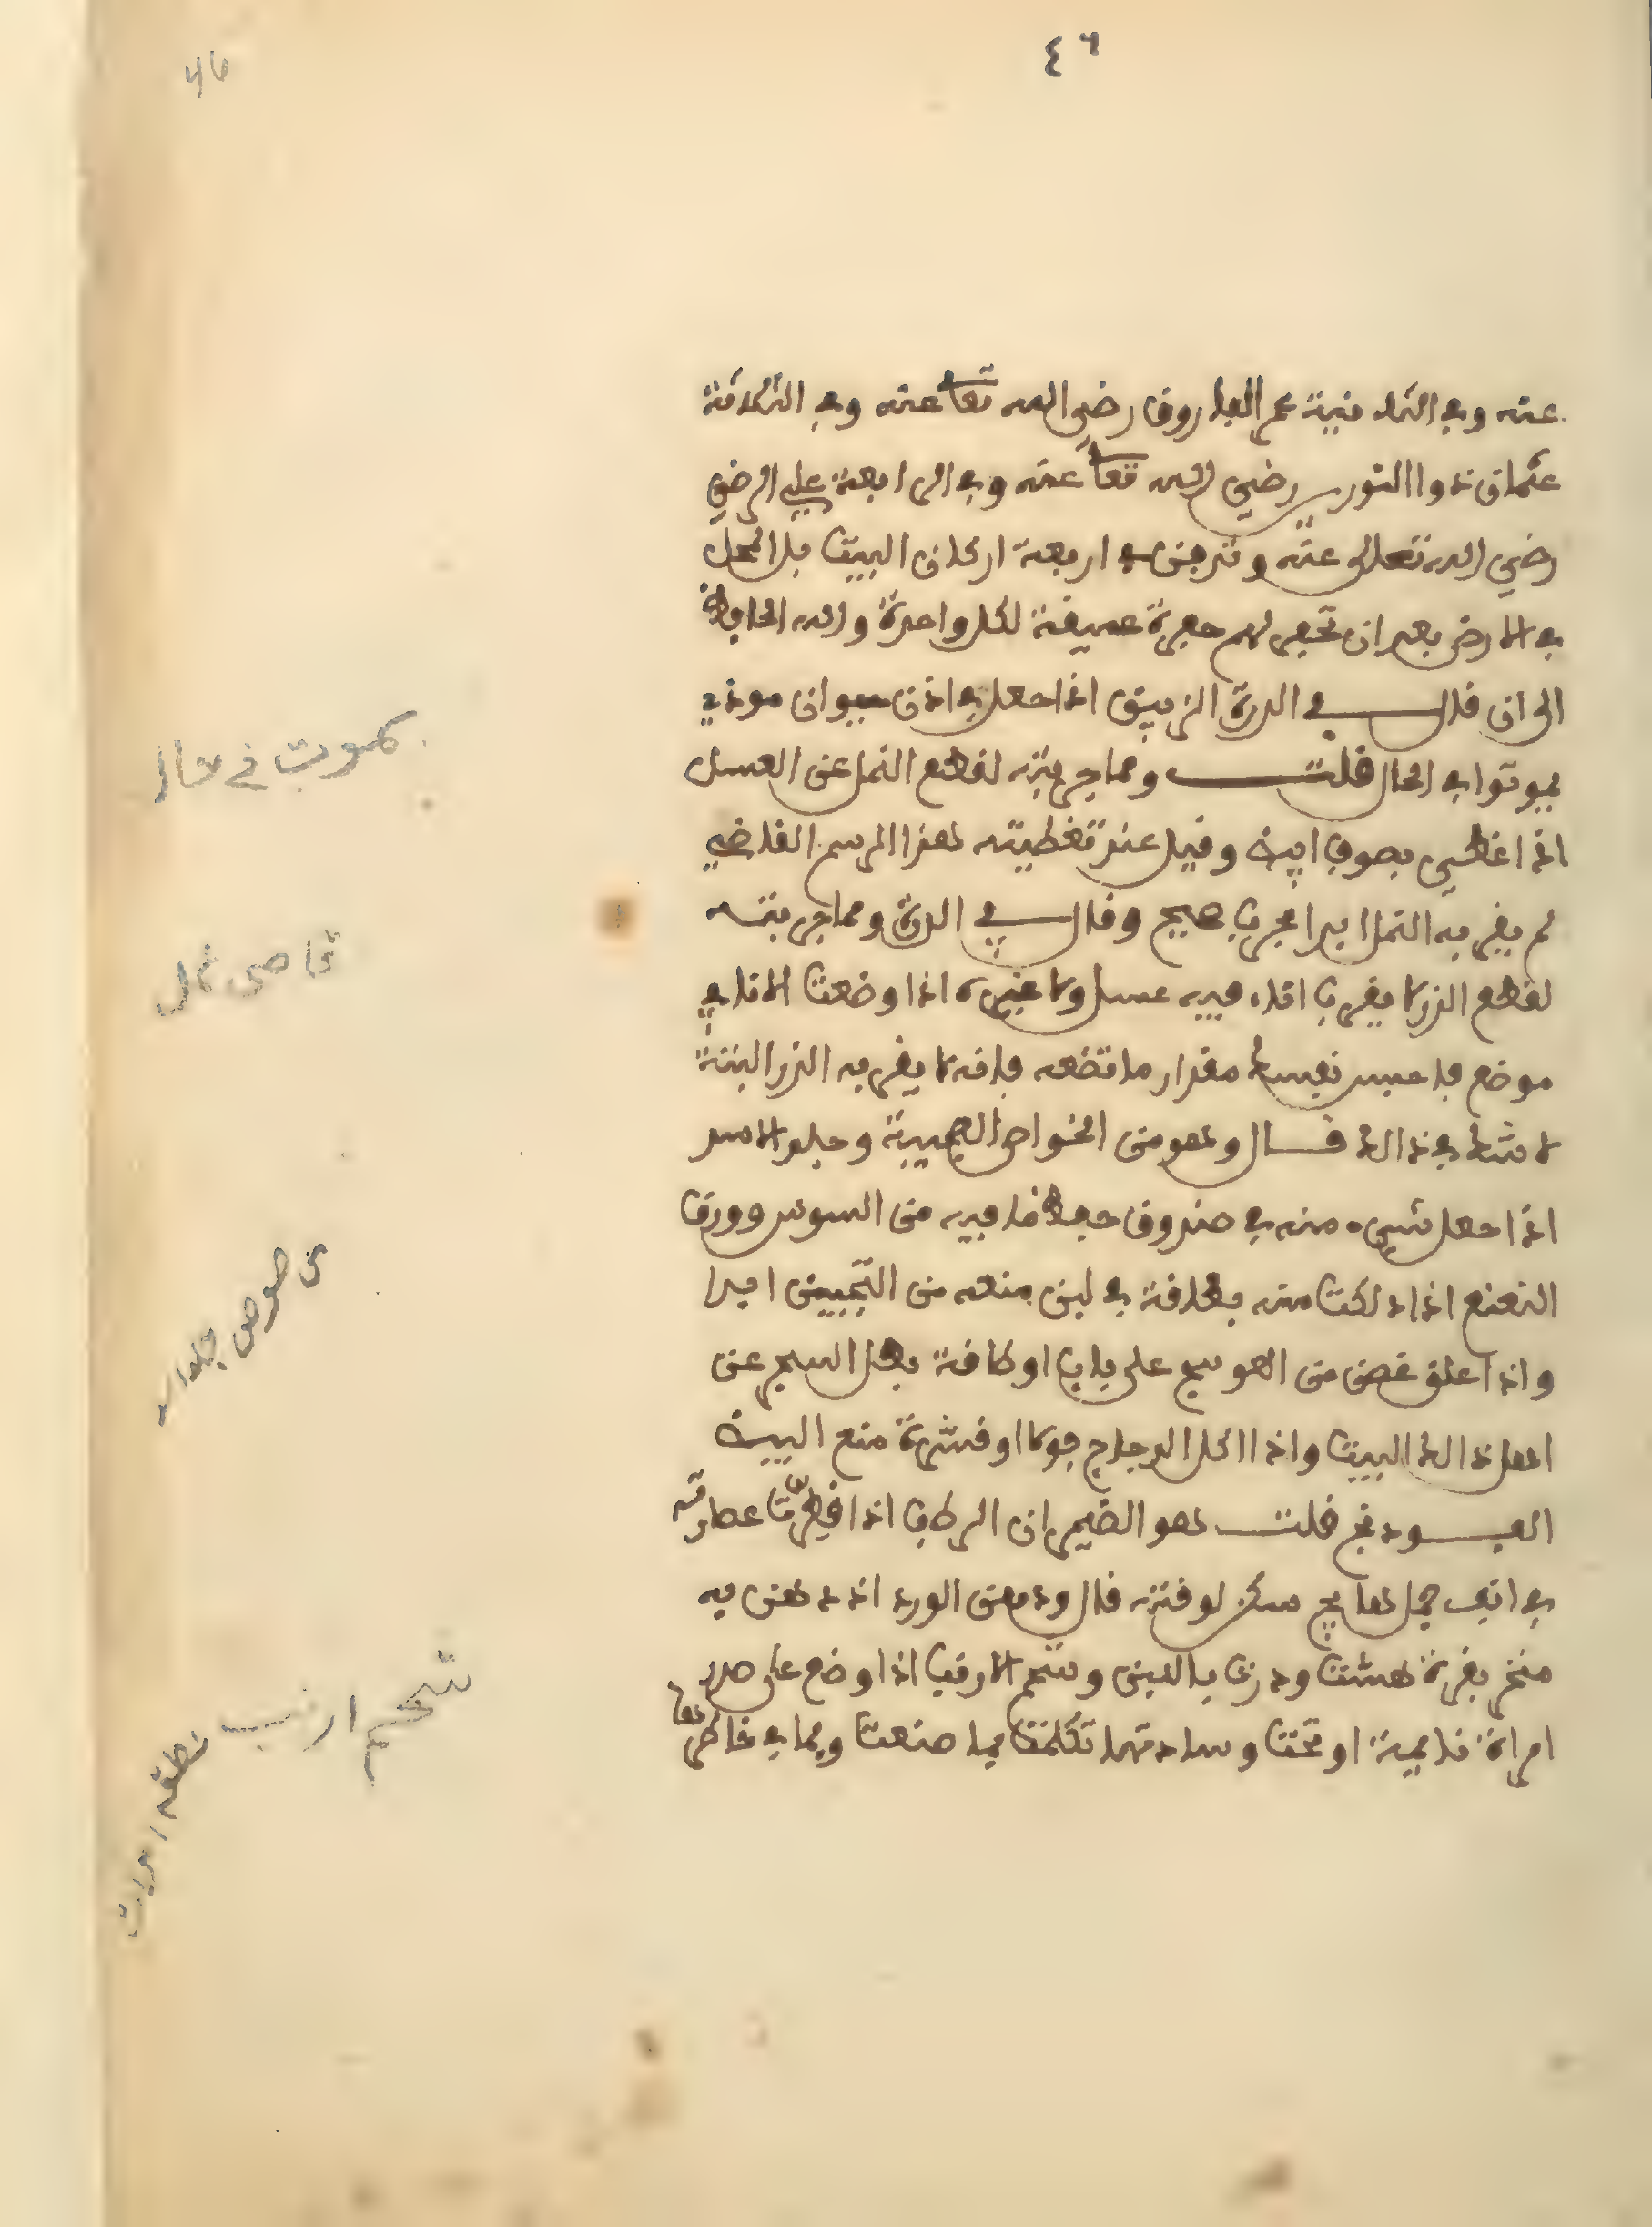 ٤٦
46
عنه وفي الثانية عمر الفاروق رضي الله تعا عنه وفي الثالثة
عثمان ذوا النورين رضي الله تعا عنه وفي الرابعة علي الرضي
رضي الله تعالى عنه وتدفن في اربعة اركان البيت بل المحل
في الارض بعد ان تحفر لهم حفرة عميقة لكل واحدة والله الحافظ
الى ان قال في الدرة الزيبق اذا جعل في اذن حيوان موذي
يموتوا في الحال قلت ومما جربته لقطع النمل عن العسل
اذا غطي بصوف ابيض وقيل عند تغطيته لهذا المرسم القاضي
لم يقربه النمل ابدا مجرب صحيح وقال في الدرة ومما جربته
لقطع الذر لا يقرب اناء فيه عسل ولا غيره اذا وضعت الاناء في
موضع فاحبس نفسك مقدار ما تضعه فانه لا يقربه الذر البتة
لا شك في ذالك قال وهو من الخواص العجيبة وجلد الاسد
اذا جعل شيء منه في صندوق حفظ ما فيه من السوس وورق
النعنع اذا دلكت منه بطاقة في لبن منعه من التجبين ابدا
واذا علق غصن من العوسج على باب او طاقة بطل السحر عن
اهل ذالك البيت واذا اكل الدجاج فولا او قشرة منع البيض
الفسودنج قلت هو الضيمران الرطب اذا قطرت عصارته
في انف جمل هايج سكن لوقته قال ودهن الورد اذ دهن به
منخر بقرة هشت ودرت باللبن وشحم الارنب اذا وضع على صدر
امراة نايمة او تحت وسادتها تكلمت بما صنعت وبما في خاطرها
يموت في حال
شحم ارنب